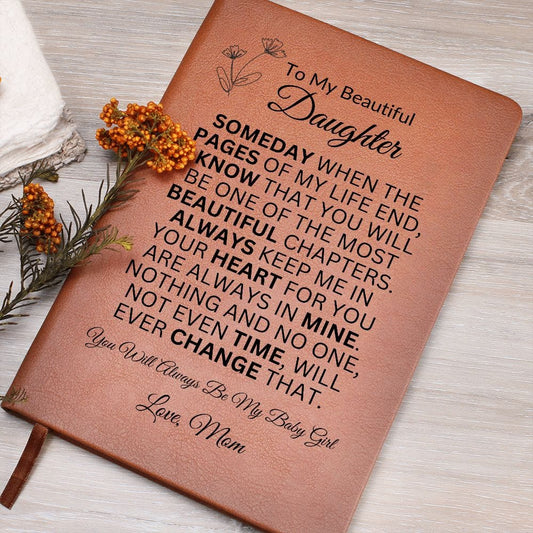 To My Beautiful
Daughter
SOMEDAY WHEN THE
PAGES OF MY LIFE END,
KNOW THAT YOU WILL
BE ONE OF THE MOST
BEAUTIFUL CHAPTERS.
ALWAYS KEEP ME IN
YOUR HEART FOR YOU
ARE ALWAYS IN MINE.
NOTHING AND NO ONE,
NOT EVEN TIME, WILL
EVER CHANGE THAT.
You Will Always Be My Baby Girl
Love, Mom